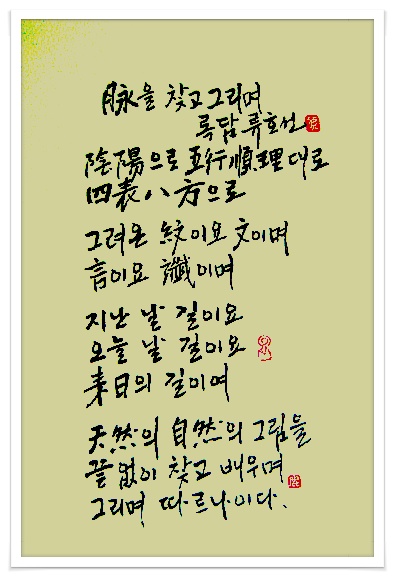 脉을 찾고 그리며
록담 류호선
陰陽으로 五行順理대로
四表八方으로
그려온 紋이요 文이며
言이요 讖이며
지난 날 길이요
오늘 날 길이요
来日의 길이며
天然의 自然의 그림을
끝없이 찾고 배우며
그리며 따르나이다.